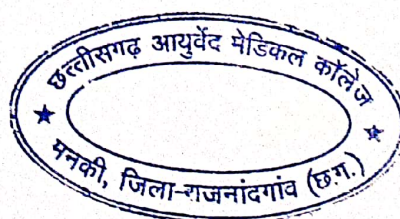 छत्तीसगढ़ आयुर्वेद मेडिकल कॉलेज
मनकी, जिला-राजनांदगांव (छ.ग.)